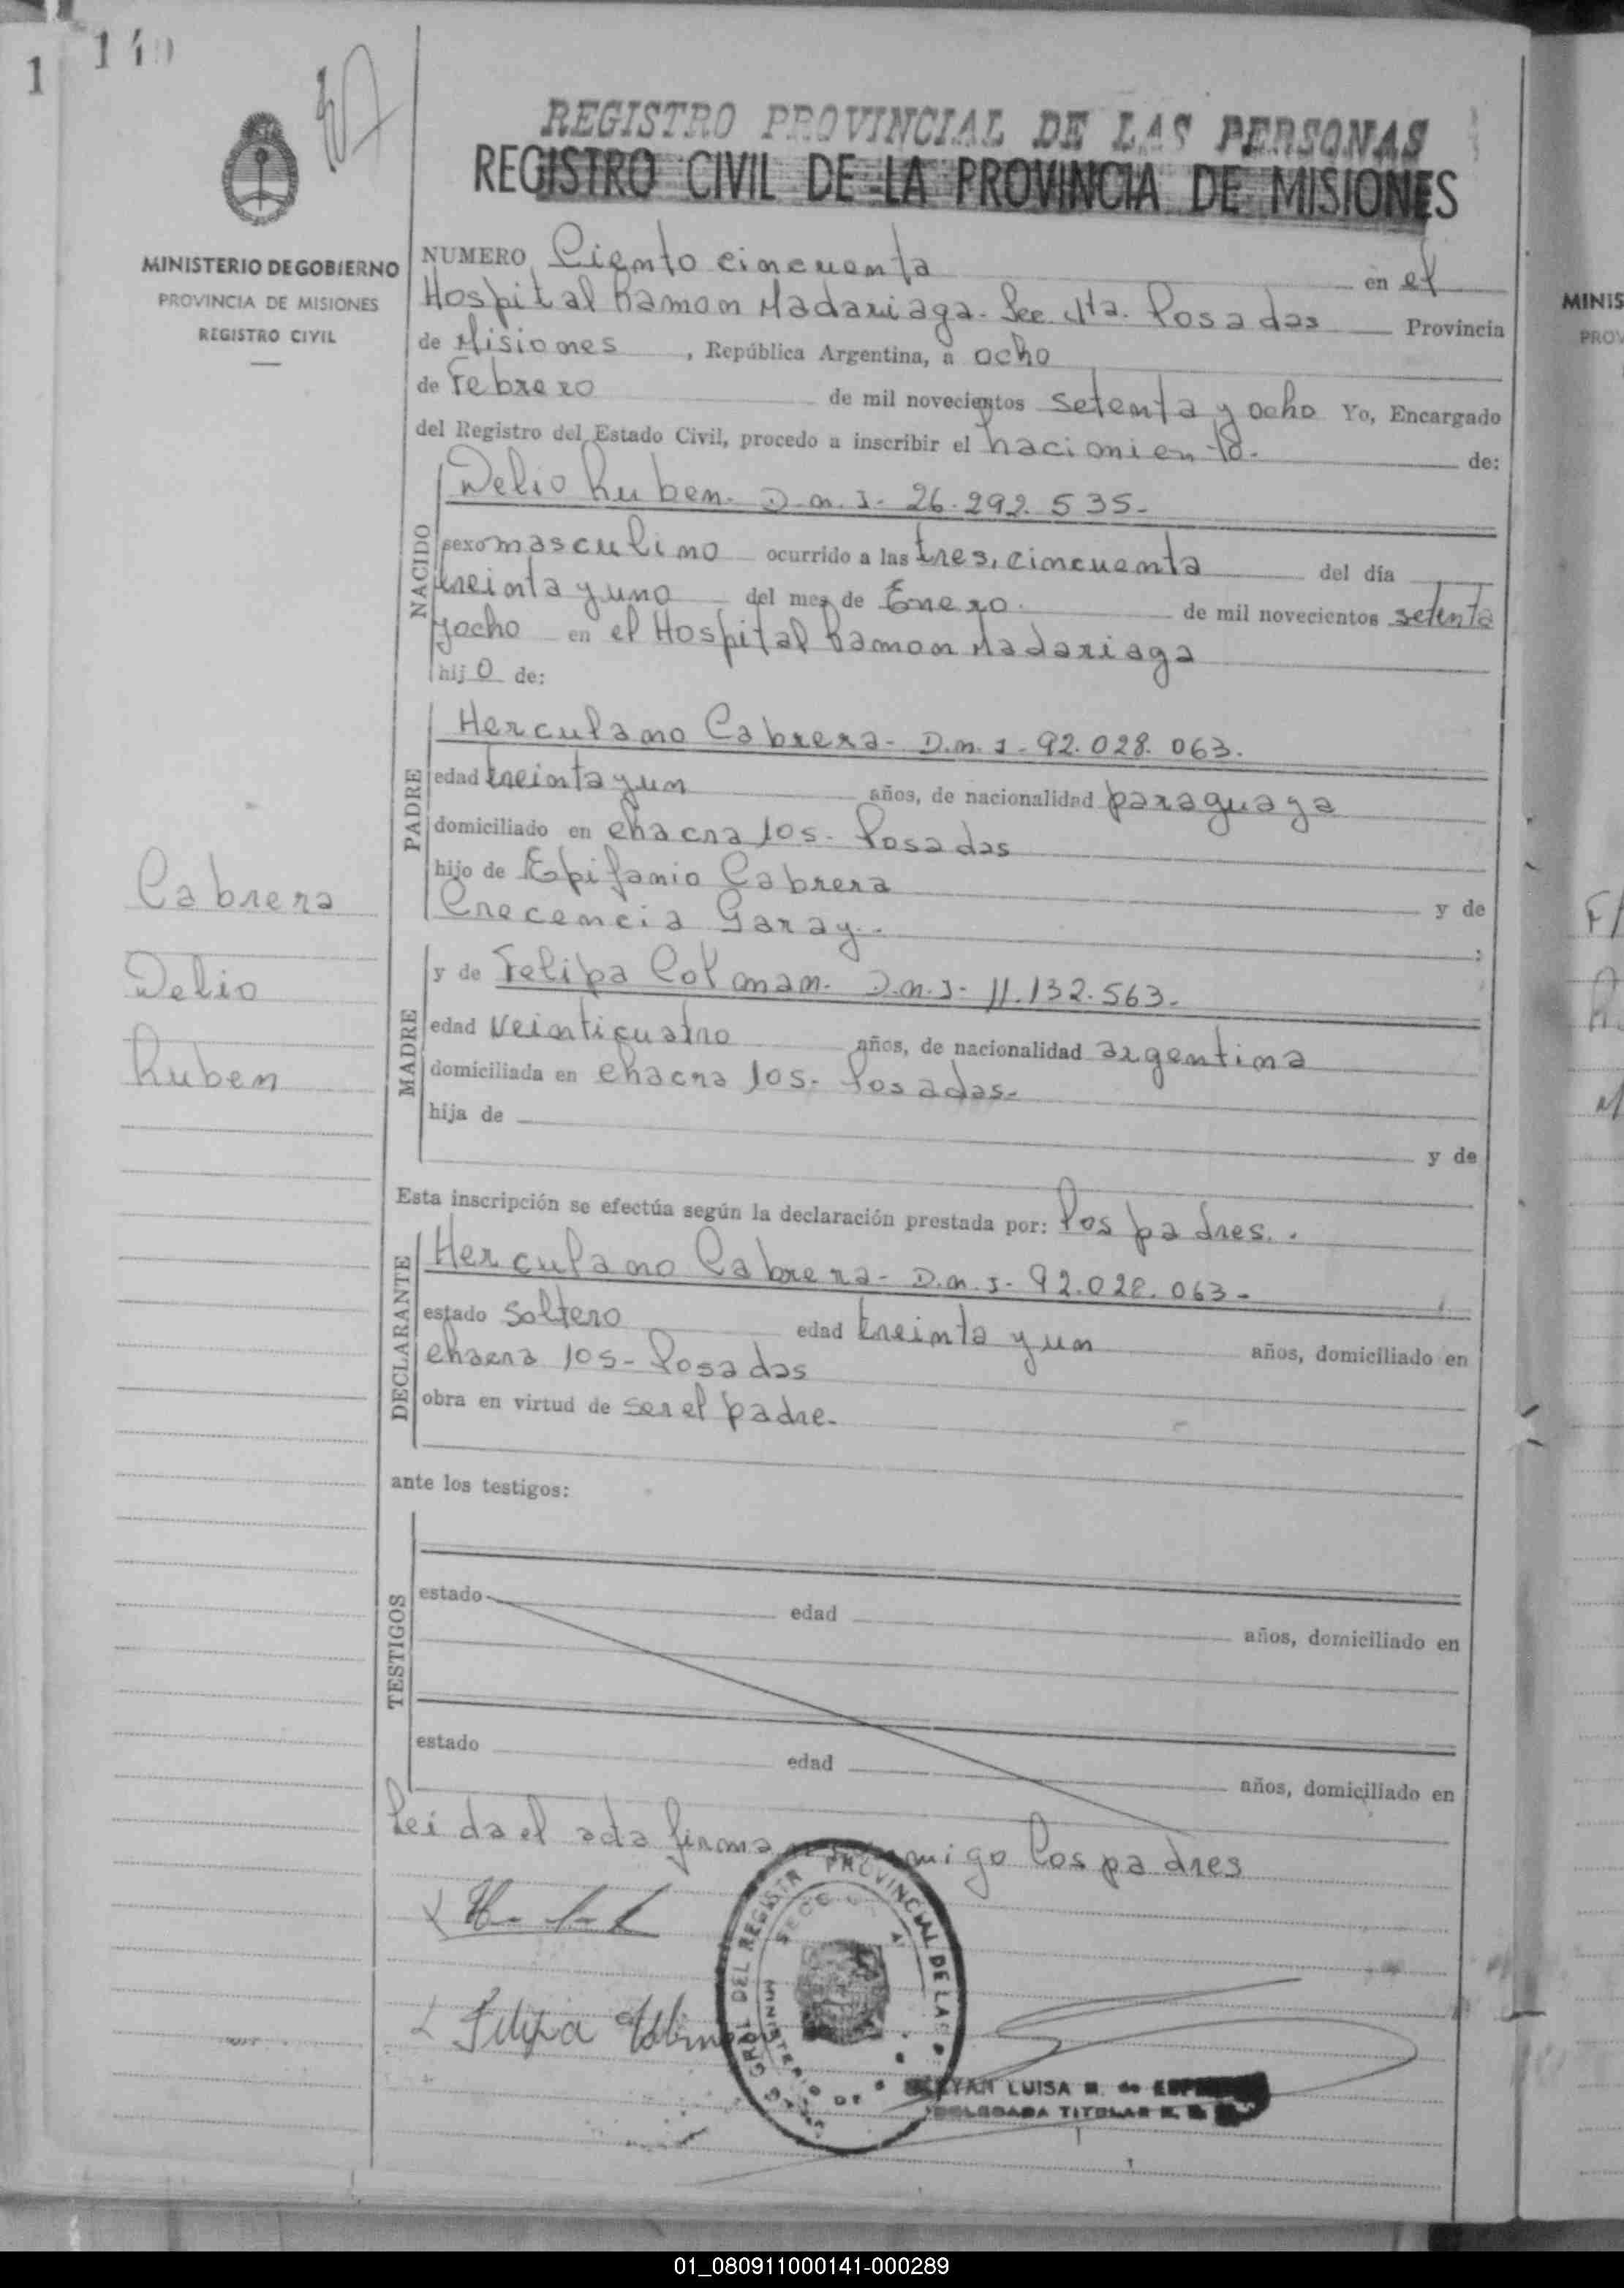 1 1 4 0
REGISTRO PROVINCIAL DE LAS PERSONAS
REGISTRO CIVIL DE LA PROVINCIA DE MISIONES
MINISTERIO DE GOBIERNO
PROVINCIA DE MISIONES
REGISTRO CIVIL
NUMERO Ciento cincuenta en el
Hospital Ramon Madariaga. Sec. 4ta. Posadas Provincia
de Misiones , República Argentina, a ocho
de Febrero de mil novecientos setenta y ocho Yo, Encargado
del Registro del Estado Civil, procedo a inscribir el nacimiento. de:
NACIDO
Delio Ruben. D.n.I. 26.292.535-
sexo masculino ocurrido a las tres, cincuenta del día
treinta y uno del mes de Enero. de mil novecientos setenta
y ocho en el Hospital Ramon Madariaga
hijo de:
PADRE
Herculano Cabrera- D.n.I- 92.028.063.
edad treinta y un años, de nacionalidad paraguaya
domiciliado en chacra 105- Posadas
hijo de Epifanio Cabrera y de
Crecencia Garay.- ;
MADRE
y de Felipa Colman. D.n.I- 11.132.563.
edad veinticuatro años, de nacionalidad argentina
domiciliada en chacra 105- Posadas-
hija de
y de
Cabrera
Delio
Ruben
Esta inscripción se efectúa según la declaración prestada por: los padres. .
DECLARANTE
Herculano Cabrera- D.n.I- 92.028.063-
estado soltero edad treinta y un años, domiciliado en
chacra 105- Posadas
obra en virtud de ser el padre.
ante los testigos:
TESTIGOS
estado edad años, domiciliado en
estado edad años, domiciliado en
Leida el acta firma migo los padres
Felipa
DEL REGISTR PROVINCIAL DE LAS
LUISA
TITULAR
MINIS
PROV
01_080911000141-000289